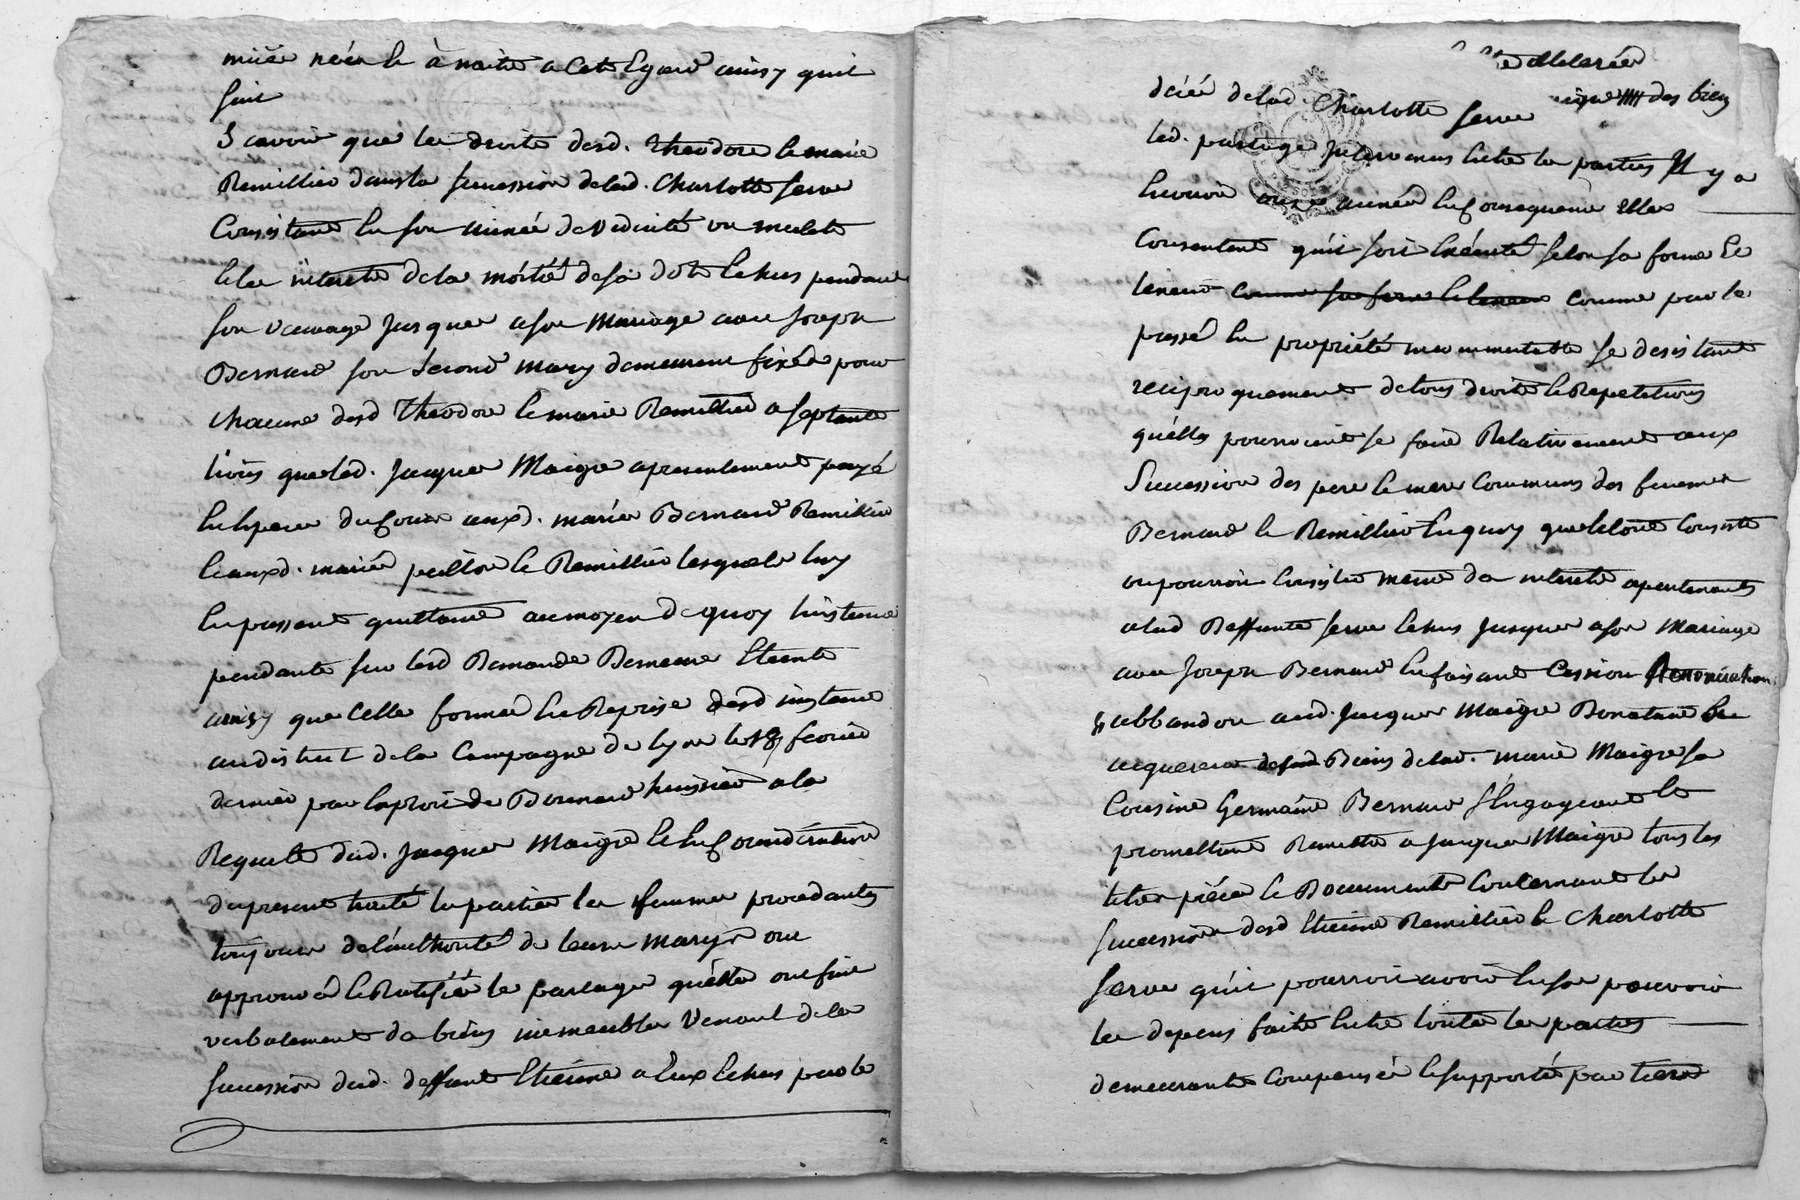 naitre a cet Egard ainsy quil
suit
Scavoir que les droits desd. theodore et marie
Remillier dans la succession delad. Charlotte serve
Consistant en son année de viduité ou
et les interets de la moitié de sa dote Echus pendant
son veuvage jusques a son mariage avec joseph
Bernard son second mary demeurent fixés pour
chacune desd theodore et marie Remillier a septante
livres queled. jacques Maigre apresentement payé
En Especes du Cours auxd. mariés Bernard Remillier
et auxd. mariés et Remillier lesquels luy
En passent quittance au moyen de quoy linstance
pendante sur lesd Demandes Demeure Eteinte
ainsy que celle formée En Reprise desd instance
de la Campagne de lyon le 18 fevrier
dernier par Exploit de Bernard huissier a la
Requete dud. jacques Maigre et En Consideration
du present traité les parties les femmes procedantes
toujours de lauthorité de leurs marys ont
approuvé et Ratifié le partage quelles ont fait
verbalement des biens immeubles Venant de la
succession dud. deffunt Etienne a Eux Echus par le
décés delad. Charlotte serve
des biens
led. partage jntervenus Entre les parties Il y a
Environ onze années En Consequence Elles
Consentent quil soit Exécuté selon sa forme Et
teneur comme sa forme et teneur comme par le
passé En propriété incommutable se desistant
reciproquement de tous droits et Repetitions
quelles pourroient se faire Relativement aux
Succession des pere et mere Communs des femmes
Bernard et Remillier En quoy quele tout Consiste
ou pourroit Consister meme des interets apartenants
alad Deffunte serve Echus jusques a son Mariage
avec joseph Bernard En faisant Cession Renonciation
et abbandon aud. jacques Maigre Donataire
acquereur desd Biens delad. marie Maigre sa
Cousine Germaine Bernard s'Engageant Et
promettant Remettre a jacques Maigre tous les
titres piéces et Documents Concernant les
succession desd Etienne Remillier et Charlotte
Serve quil pourroit avoir En son pouvoir
les depens faits Entre toutes les parties
demeurants Compensés et supportés par tiers